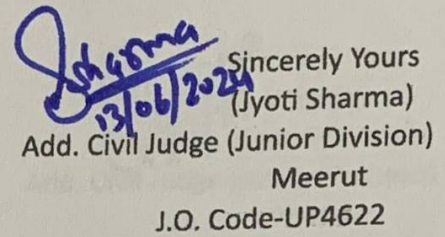 Jsharma
13/06/2024
Sincerely Yours
(Jyoti Sharma)
Add. Civil Judge (Junior Division)
Meerut
J.O. Code-UP4622